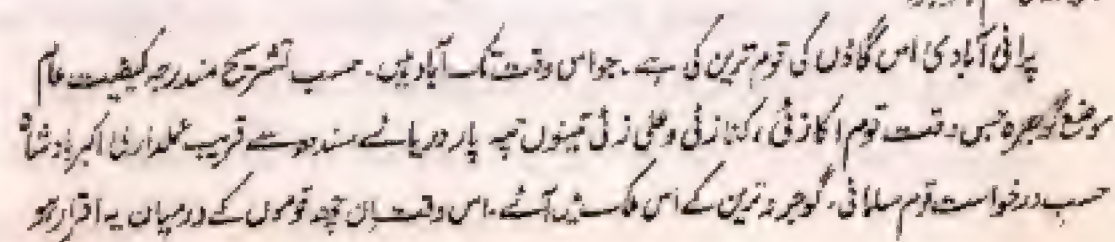 پرانی آبادی اس گاؤں کی قوم ترین کی ہے۔ جو اس وقت تک آباد ہیں۔ حسب تشریح مندرجہ کیفیت عام
موضع گوجرہ جس وقت قوم اکازئی، کنازئی و علی زئی تینوں تپہ پار دریائے سندھ سے قریب عملداری اکبر بادشاہ
حسب درخواست قوم سلمانی، گوجر و ترین کے اس ملک میں آئے۔ اس وقت ان چھ قوموں کے درمیان یہ اقرار ہو